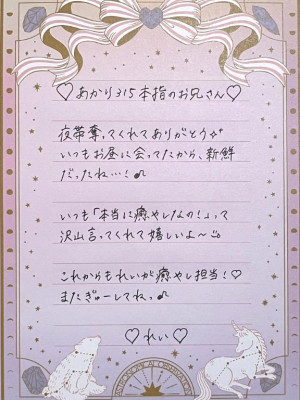 ♡あかり315本指のお兄さん♡
夜帯奪ってくれてありがとう✨
いつもお昼に会ってたから、新鮮
だったね…!♪
いつも「本当に癒やしなの!」って
沢山言ってくれて嬉しいよ〜☺
これからもれいが癒やし担当!♡
またぎゅーしてねっ♪
♡れい♡